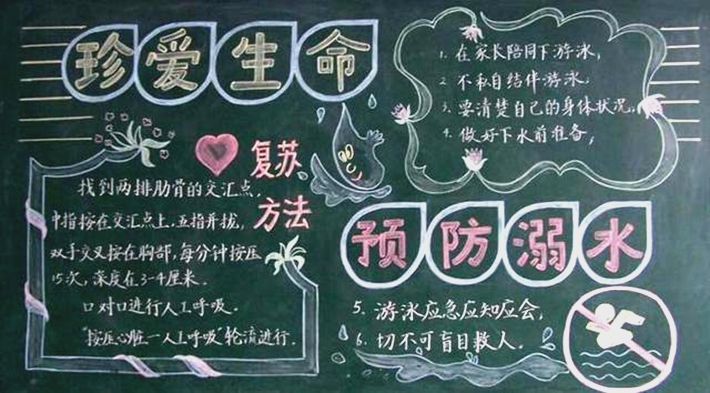 珍爱生命
1. 在家长陪同下游泳,
2. 不私自结伴游泳,
3. 要清楚自己的身体状况,
4. 做好下水前准备,
复苏
方法
找到两排肋骨的交汇点,
中指按在交汇点上,五指并拢,
双手交叉按在胸部,每分钟按压
15次,深度在3-4厘米.
口对口进行人工呼吸.
"按压心脏—人工呼吸"轮流进行.
预防溺水
5. 游泳应急应知应会,
6. 切不可盲目救人.